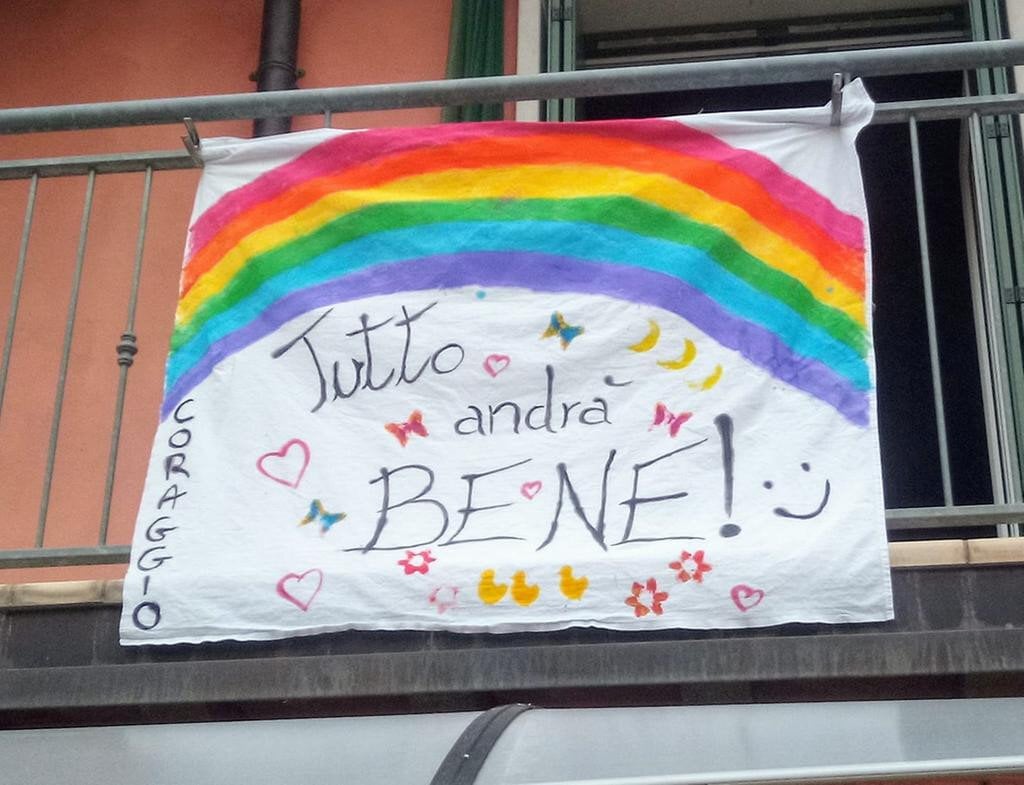 Tutto
andrà
BENE! :)
CORAGGIO